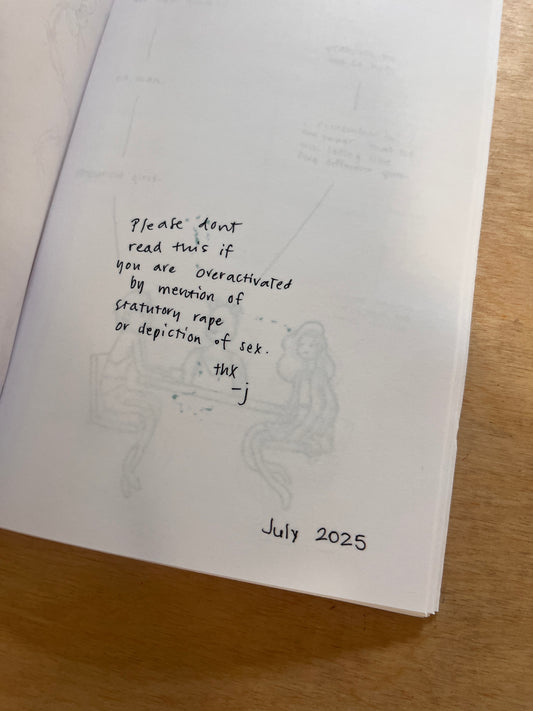 Please dont
read this if
you are overactivated
by mention of
statutory rape
or depiction of sex.
thx
-j
July 2025